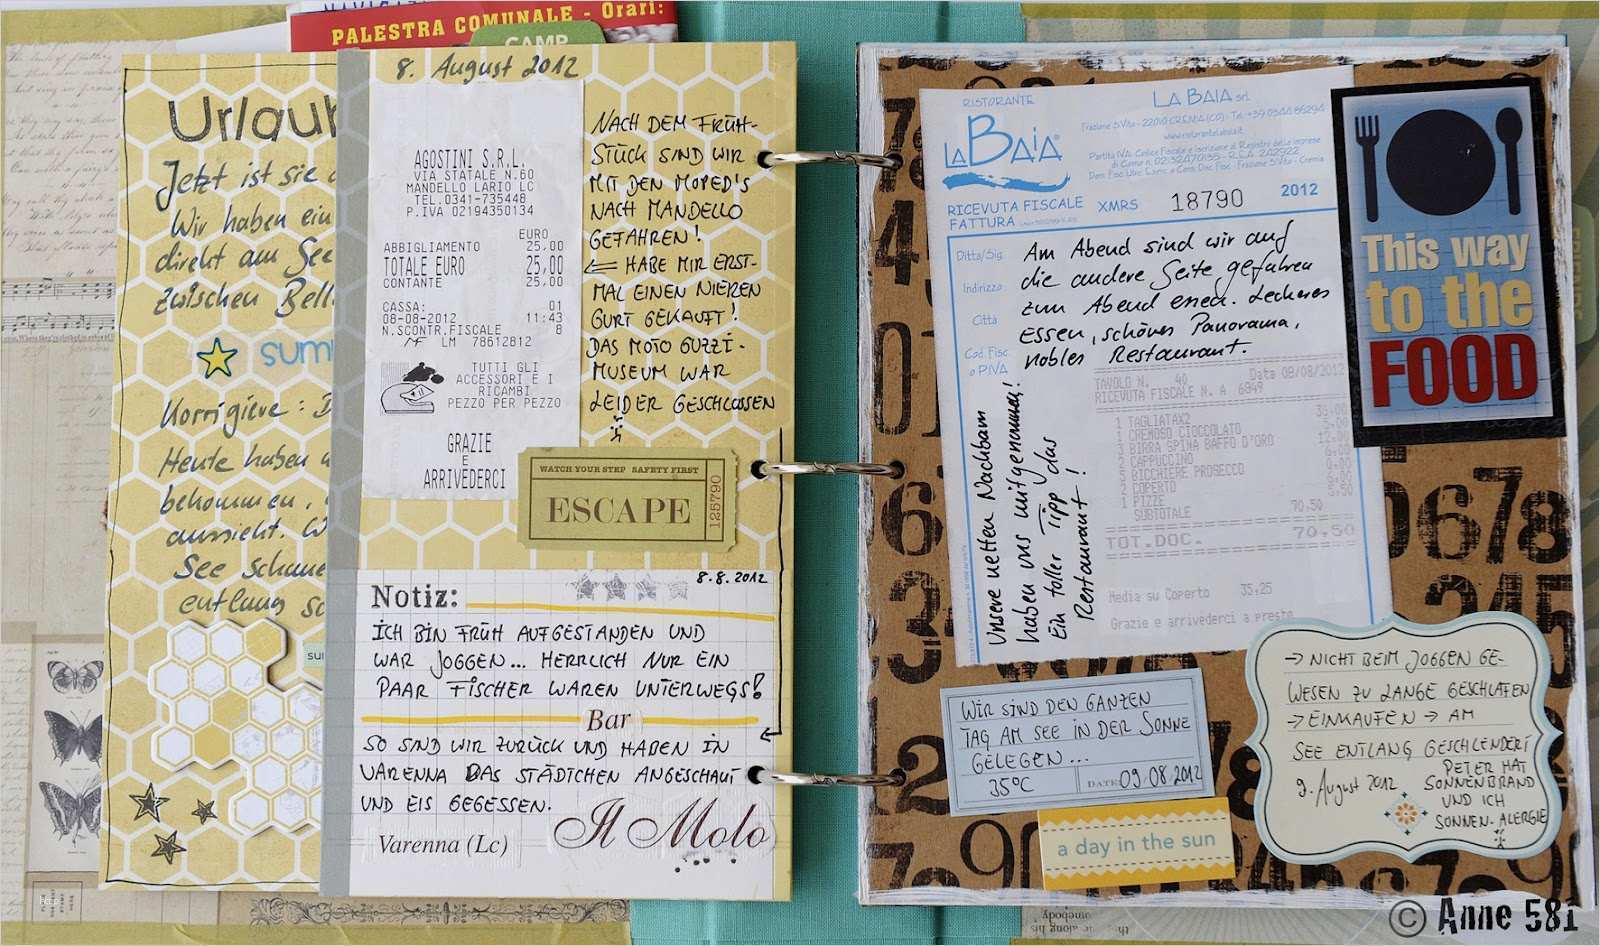 NAVIGAZIO
PALESTRA COMUNALE - Orari:
CAMP
Urlaub
Jetzt ist sie
Wir haben ein
direkt am See
zwischen Bell
summ
Korrigiere:
Heute haben
bekommen,
aussieht.
See
entlang
su
8. August 2012
AGOSTINI S.R.L.
VIA STATALE N.60
MANDELLO LARIO LC
TEL.0341-735448
P.IVA 02194350134
EURO
ABBIGLIAMENTO 25,00
TOTALE EURO 25,00
CONTANTE 25,00
CASSA: 01
08-08-2012 11:43
N.SCONTR.FISCALE 8
MF LM 78612812
TUTTI GLI
ACCESSORI E I
RICAMBI
PEZZO PER PEZZO
GRAZIE
E
ARRIVEDERCI
NACH DEM FRÜH-
STÜCK SIND WIR
MIT DEN MOPED'S
NACH MANDELLO
GEFAHREN!
HABE MIR ERST-
MAL EINEN NIEREN
GURT GEKAUFT!
DAS MOTO GUZZI-
MUSEUM WAR
LEIDER GESCHLOSSEN
WATCH YOUR STEP SAFETY FIRST
ESCAPE
125790
8.8.2012
Notiz:
ICH BIN FRÜH AUFGESTANDEN UND
WAR JOGGEN... HERRLICH NUR EIN
PAAR FISCHER WAREN UNTERWEGS!
Bar
SO SIND WIR ZURÜCK UND HABEN IN
VARENNA DAS STÄDTCHEN ANGESCHAUT
UND EIS GEGESSEN.
Il Molo
Varenna (Lc)
RISTORANTE
LA BAIA
LA BAIA srl
Frazione S.Vito - 22010 CREMIA (CO) - Tel. +39 0344 86294
www.ristorantelabaia.it
RICEVUTA FISCALE
FATTURA
XMRS 18790 2012
Ditta/Sig.
Indirizzo
Città
Cod. Fisc.
o P.IVA
Am Abend sind wir auf
die andere Seite gefahren
zum Abend essen. Leckeres
Essen, schönes Panorama,
nobles Restaurant.
Unsere netten Nachbarn
haben uns mitgenommen!
Ein toller Tipp das
Restaurant!
TAVOLO N. 40 Data 08/08/2012
RICEVUTA FISCALE N. A 6849
1 TAGLIATAX2
1 CREMOSO CIOCCOLATO
3 BIRRA SPINA BAFFO D'ORO
2 CAPPUCCINO
2 BICCHIERE PROSECCO
2 COPERTO
1 PIZZE
SUBTOTALE 70,50
TOT.DOC. 70,50
Media su Coperto 35,25
Grazie e arrivederci a presto
This way
to the
FOOD
WIR SIND DEN GANZEN
TAG AM SEE IN DER SONNE
GELEGEN...
35°C DATE 09.08.2012
a day in the sun
→ NICHT BEIM JOGGEN GE-
WESEN ZU LANGE GESCHLAFEN
→ EINKAUFEN → AM
SEE ENTLANG GESCHLENDERT
9. August 2012
PETER HAT
SONNENBRAND
UND ICH
SONNEN-ALERGIE
© Anne 581